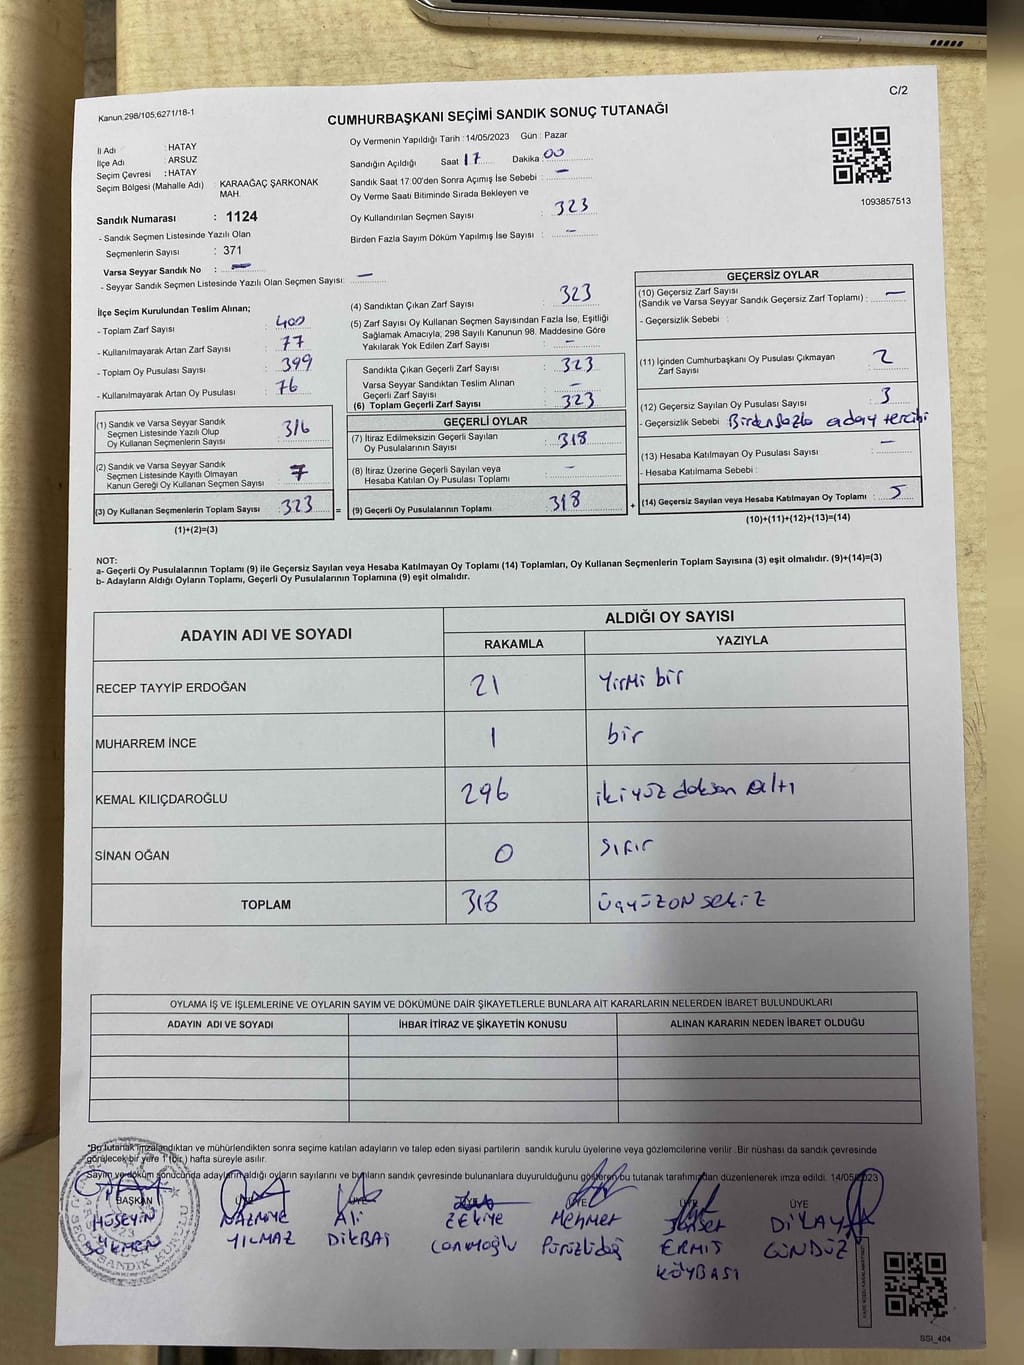 C/2
Kanun,298/105,6271/18-1
CUMHURBAŞKANI SEÇİMİ SANDIK SONUÇ TUTANAĞI
İl Adı : HATAY
İlçe Adı : ARSUZ
Seçim Çevresi : HATAY
Seçim Bölgesi (Mahalle Adı) : KARAAĞAÇ ŞARKONAK
MAH.
Sandık Numarası : 1124
- Sandık Seçmen Listesinde Yazılı Olan
Seçmenlerin Sayısı : 371
Varsa Seyyar Sandık No : -
- Seyyar Sandık Seçmen Listesinde Yazılı Olan Seçmen Sayısı: -
Oy Vermenin Yapıldığı Tarih : 14/05/2023 Gün : Pazar
Sandığın Açıldığı Saat 17 Dakika 00
Sandık Saat 17:00'den Sonra Açımış İse Sebebi : -
Oy Verme Saati Bitiminde Sırada Bekleyen ve
Oy Kullandırılan Seçmen Sayısı : 323
Birden Fazla Sayım Döküm Yapılmış İse Sayısı : -
1093857513
İlçe Seçim Kurulundan Teslim Alınan;
- Toplam Zarf Sayısı : 400
- Kullanılmayarak Artan Zarf Sayısı : 77
- Toplam Oy Pusulası Sayısı : 399
- Kullanılmayarak Artan Oy Pusulası : 76
(1) Sandık ve Varsa Seyyar Sandık
Seçmen Listesinde Yazılı Olup
Oy Kullanan Seçmenlerin Sayısı : 316
(2) Sandık ve Varsa Seyyar Sandık
Seçmen Listesinde Kayıtlı Olmayan
Kanun Gereği Oy Kullanan Seçmen Sayısı : 7
(3) Oy Kullanan Seçmenlerin Toplam Sayısı : 323 =
(1)+(2)=(3)
(4) Sandıktan Çıkan Zarf Sayısı : 323
(5) Zarf Sayısı Oy Kullanan Seçmen Sayısından Fazla İse, Eşitliği
Sağlamak Amacıyla, 298 Sayılı Kanunun 98. Maddesine Göre
Yakılarak Yok Edilen Zarf Sayısı : -
Sandıkta Çıkan Geçerli Zarf Sayısı : 323
Varsa Seyyar Sandıktan Teslim Alınan
Geçerli Zarf Sayısı : -
(6) Toplam Geçerli Zarf Sayısı : 323
GEÇERLİ OYLAR
(7) İtiraz Edilmeksizin Geçerli Sayılan
Oy Pusulalarının Sayısı : 318
(8) İtiraz Üzerine Geçerli Sayılan veya
Hesaba Katılan Oy Pusulası Toplamı : -
(9) Geçerli Oy Pusulalarının Toplamı : 318 +
GEÇERSİZ OYLAR
(10) Geçersiz Zarf Sayısı
(Sandık ve Varsa Seyyar Sandık Geçersiz Zarf Toplamı) : -
- Geçersizlik Sebebi :
(11) İçinden Cumhurbaşkanı Oy Pusulası Çıkmayan
Zarf Sayısı : 2
(12) Geçersiz Sayılan Oy Pusulası Sayısı : 3
- Geçersizlik Sebebi : Birden fazla aday tercihi
(13) Hesaba Katılmayan Oy Pusulası Sayısı : -
- Hesaba Katılmama Sebebi :
(14) Geçersiz Sayılan veya Hesaba Katılmayan Oy Toplamı : 5
(10)+(11)+(12)+(13)=(14)
NOT:
a- Geçerli Oy Pusulalarının Toplamı (9) ile Geçersiz Sayılan veya Hesaba Katılmayan Oy Toplamı (14) Toplamları, Oy Kullanan Seçmenlerin Toplam Sayısına (3) eşit olmalıdır. (9)+(14)=(3)
b- Adayların Aldığı Oyların Toplamı, Geçerli Oy Pusulalarının Toplamına (9) eşit olmalıdır.
ADAYIN ADI VE SOYADI ALDIĞI OY SAYISI
RAKAMLA YAZIYLA
RECEP TAYYİP ERDOĞAN 21 Yirmi bir
MUHARREM İNCE 1 bir
KEMAL KILIÇDAROĞLU 296 ikiyüz doksan altı
SİNAN OĞAN 0 Sıfır
TOPLAM 318 üçyüzon sekiz
OYLAMA İŞ VE İŞLEMLERİNE VE OYLARIN SAYIM VE DÖKÜMÜNE DAİR ŞİKAYETLERLE BUNLARA AİT KARARLARIN NELERDEN İBARET BULUNDUKLARI
ADAYIN ADI VE SOYADI İHBAR İTİRAZ VE ŞİKAYETİN KONUSU ALINAN KARARIN NEDEN İBARET OLDUĞU
*Bu tutanak imzalandıktan ve mühürlendikten sonra seçime katılan adayların ve talep eden siyasi partilerin sandık kurulu üyelerine veya gözlemcilerine verilir .Bir nüshası da sandık çevresinde
görülecek bir yere 1 (bir.) hafta süreyle asılır.
Sayım ve döküm sonucunda adayların aldığı oyların sayılarını ve bunların sandık çevresinde bulunanlara duyurulduğunu gösteren bu tutanak tarafımızdan düzenlenerek imza edildi. 14/05/2023
BAŞKAN ÜYE ÜYE ÜYE ÜYE
HÜSEYİN NAZMİYE Ali Zekiye Mehmet DİLAY
YILMAZ DİKBAŞ ERMİŞ GÜNDÜZ
KÖYBASI
SSI_404